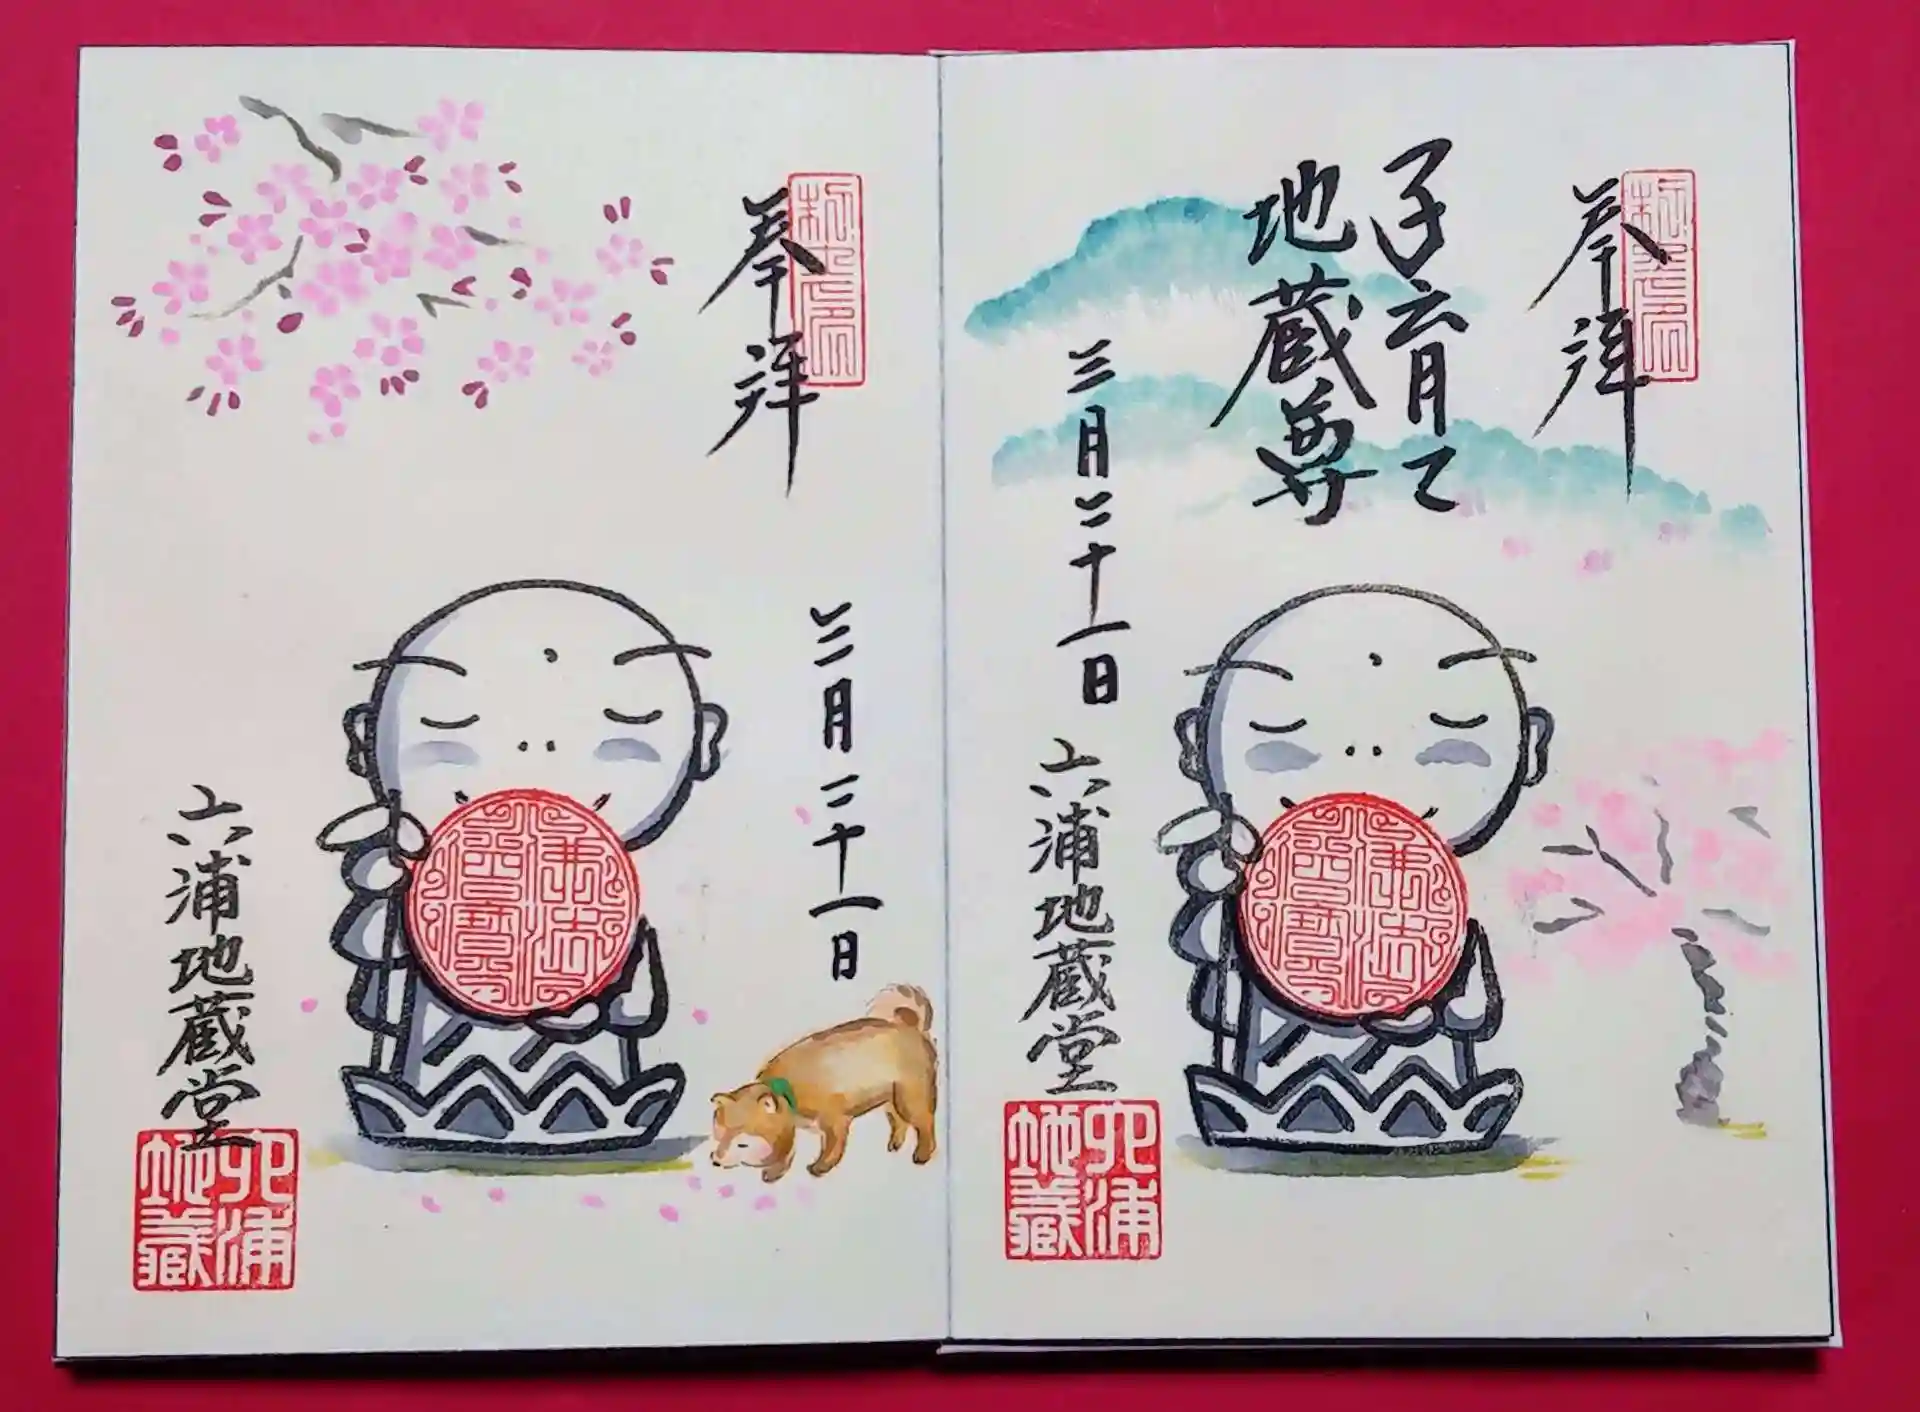 奉拝
子育て
地蔵尊
三月二十一日
六浦地蔵堂
六浦
地蔵
奉拝
三月二十一日
六浦地蔵堂
六浦
地蔵